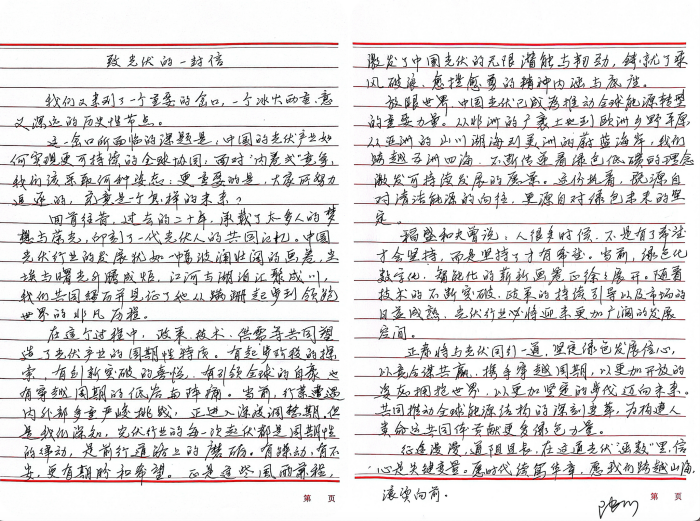 致光伏的一封信
我们又来到了一个重要的岔口，一个冰火两重、意
义深远的历史性节点。
这一岔口所面临的课题是，中国的光伏产业如
何实现更可持续的全球协同，面对“内卷式”竞争，
我们该采取何种姿态；更重要的是，大家所努力
追逐的，究竟是一个怎样的未来？
回首往昔，过去的二十年，承载了太多人的梦
想与荣光，印刻了一代光伏人的共同记忆。中国
光伏行业的发展犹如一幅波澜壮阔的画卷，尘
埃与曙光升腾成焰，江河与湖泊汇聚成川，
我们共同缔造并见证了她从蹒跚起步到领跑
世界的非凡历程。
在这个过程中，政策、技术、供需等共同塑
造了光伏产业的周期性特质。有起步阶段的探
索，有创新突破的喜悦，有引领全球的自豪，也
有穿越周期的低谷与阵痛。当前，行业遭遇
内外部多重严峻挑战，正进入深度调整期，但
是我们深知，光伏行业的每一次起伏都是周期性
的律动，是前行道路上的磨砺。有躁动，有不
安，更有期盼和希望。正是这些风雨兼程，
激发了中国光伏的无限潜能与韧劲，铸就了乘
风破浪、愈挫愈勇的精神内涵与底座。
放眼世界，中国光伏已成为推动全球能源转型
的重要力量。从非洲的广袤土地到欧洲乡野平原，
从亚洲的山川湖海到美洲的蔚蓝海岸，我们
跨越五洲四海，不断传递着绿色低碳的理念，
激发可持续发展的愿景。这份执着，既源自
对清洁能源的向往，更源自对绿色未来的坚
定。
稻盛和夫曾说：人很多时候，不是有了希望
才会坚持，而是坚持了才有希望。当前，绿色化
数字化、智能化的崭新画卷正徐徐展开。随着
技术的不断突破、政策的持续引导以及市场的
日益成熟，光伏行业必将迎来更加广阔的发展
空间。
正泰将与光伏同仁一道，坚定绿色发展信心，
以竞合谋共赢，携手穿越周期，以更加开放的
姿态拥抱世界，以更加坚定的步伐迈向未来。
共同推动全球能源结构的深刻变革，为构建人
类命运共同体贡献更多绿色力量。
征途漫漫，道阻且长，在这道光伏“函数”里，信
心是关键变量。愿时代续写华章，愿我们跨越山海，
滚烫向前。
第 页
第 页